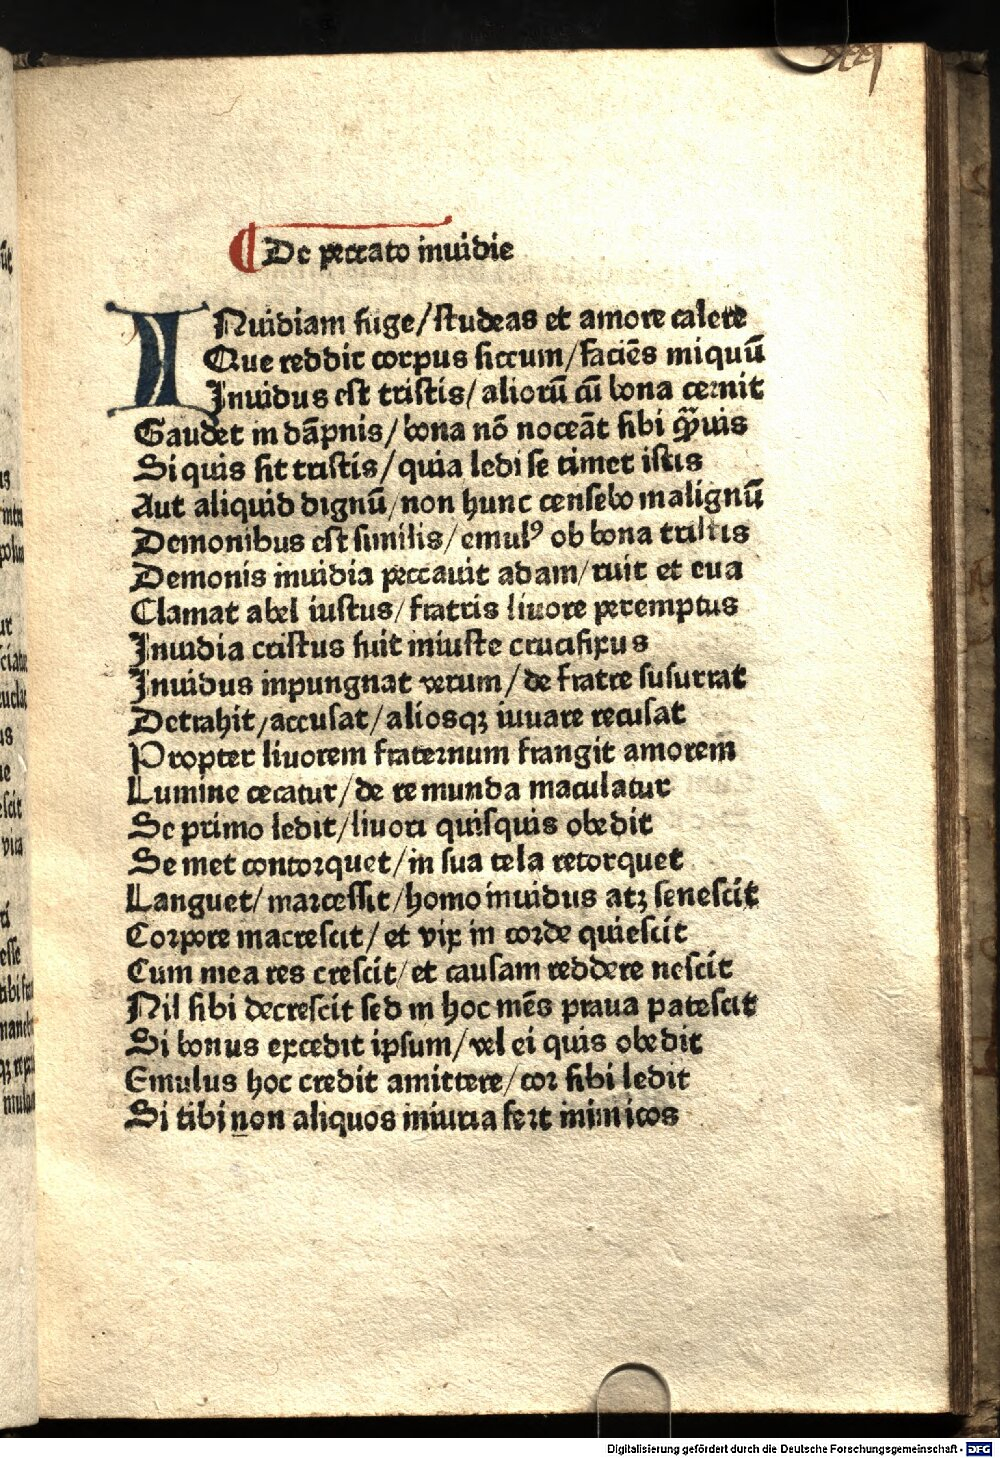 xxxj
De peccato inuidie
INuidiam fuge/studeas et amore calere
Que reddit corpus siccum/faciẽs iniquũ
Inuidus est tristis/aliorũ cũ bona cernit
Gaudet in dãpnis/bona nõ noceãt sibi q̃uis
Si quis sit tristis/quia ledi se timet istis
Aut aliquid dignũ/non hunc censebo malignũ
Demonibus est similis/emulꝰ ob bona tristis
Demonis inuidia peccauit adam/ruit et eua
Clamat abel iustus/fratris liuore peremptus
Inuidia cristus fuit iniuste crucifixus
Inuidus inpungnat verum/de fratre susurrat
Detrahit/accusat/aliosqꝫ iuuare recusat
Propter liuorem fraternum frangit amorem
Lumine cecatur/de re munda maculatur
Se primo ledit/liuori quisquis obedit
Se met contorquet/in sua tela retorquet
Languet/marcessit/homo inuidus atꝫ senescit
Corpore macrescit/et vix in corde quiescit
Cum mea res crescit/et causam reddere nescit
Nil sibi decrescit sed in hoc mẽs praua patescit
Si bonus excedit ipsum/vel ei quis obedit
Emulus hoc credit amittere/cor sibi ledit
Si tibi non aliquos iniuria fert inimicos
Digitalisierung gefördert durch die Deutsche Forschungsgemeinschaft - DFG